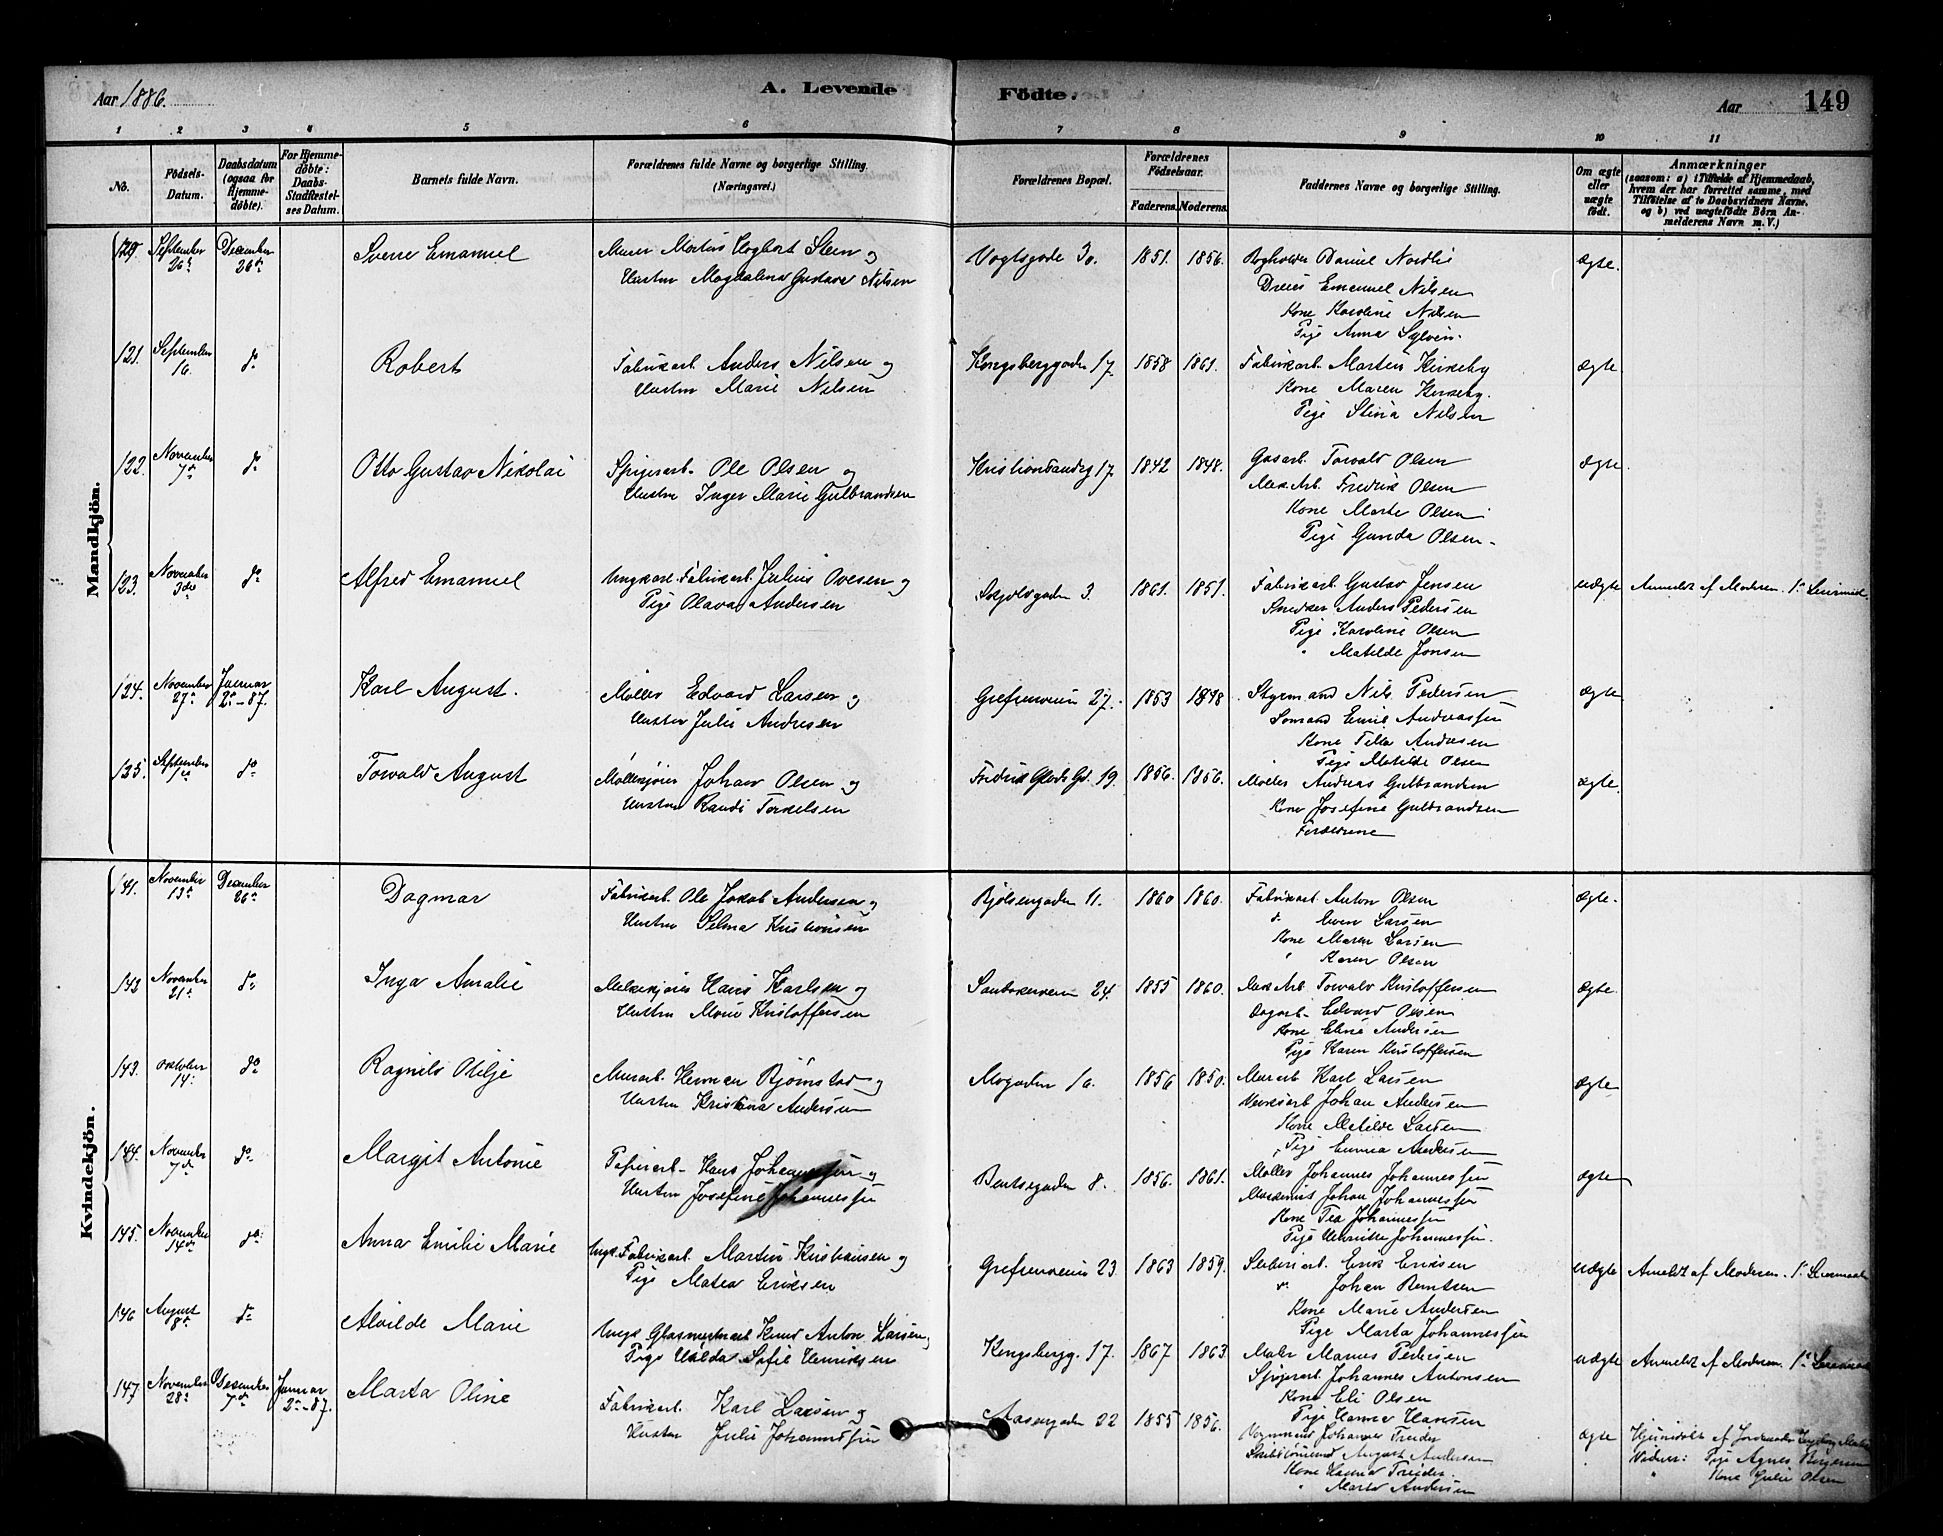 Aar 1886.
A. Levende Födte.
Aar
149
1 2 3 4 5 6 7 8 9 10 11
No.
Födsels-Datum.
Daabsdatum (ogsaa for Hjemmedöbte).
For Hjemmedöbte: Daabs-Stadfæstelses Datum.
Barnets fulde Navn.
Forældrenes fulde Navne og borgerlige Stilling. (Næringsvei.)
Forældrenes Bopæl.
Forældrenes Födselsaar.
Faderens. Moderens.
Faddernes Navne og borgerlige Stilling.
Om ægte eller uægte födt.
Anmærkninger
(saasom: a) i Tilfælde af Hjemmedaab, hvem der har forrettet samme, med Tilföielse af to Daabsvidners Navne, og b) ved uægtefödte Börn Anmelderens Navn m. V.)
Mandkjön.
September 26de December 26de Sverre Emanuel Murer Martin Hogbart Steen og Vogtsgade 30. 1851. 1856. Bogholder Daniel Nordli ægte.
Hustru Magdalena Gustava Nilsen Dreier Emanuel Nilsen
Kone Karoline Nilsen
Pige Anna
121. September 16. do Robert Fabrikarb. Anders Nilsen og Kongsberggaden 17. 1858 1861. Fabrikarb. Martin Kirkeby ægte
Hustru Marie Nilsen Kone Maren Kirkeby.
Pige Stina Nilsen
122. November 7de do Otto Gustav Nikolai Spigerarb. Ole Olsen og Kristiansandsg 17. 1842 1848. Gasarb. Torvald Olsen ægte.
Hustru Inger Marie Gulbrandsen Mek. Arb. Fredrik Olsen
Kone Marte Olsen
Pige Gunda Olsen
123. November 3die do Alfred Emanuel Ungkarl Fabrikarb. Julius Ovesen og 3. 1861. 1851. Fabrikarb. Gustav Jensen uægte Anmeldt af Moderen. 1ste Leiermaal
Pige Olava Andersen Snedker Anders Pedersen
Pige Karoline Olsen
" Matilde Jensen
124. November 27de Januar 2den - 87. Karl August. Møller Edvard Larsen og Grefsenveien 27. 1853 1848 Styrmand Nils Pedersen ægte
Hustru Julie Andresen Sømand Emil Andreassen
Kone Andresen
Pige Matilde Olsen
125. September do Torvald August Møllekjører Johan Olsen og Fredrik Glads Gd. 19. 1856. 1856. Møller Andreas Gulbrandsen ægte
Hustru Randi Torkelsen Kone Josefine Gulbrandsen
Forældrene
Kvindekjön.
141. November 13de December 26de Dagmar Fabrikarb. Ole Jakob Andersen og Bjølsengaden 11. 1860 1860. Fabrikarb. Anton Olsen ægte.
Hustru Selma Kristiansen do Even Larsen
Kone Maren Larsen
" Karen Olsen
142 November 21de do Inga Amalie Melkekjører Hans Karlsen og Sandakerveien 24. 1855 1860. Mek Arb. Torvald Kristoffersen ægte
Hustru Marie Kristoffersen Dagarb. Edvard Olsen
Kone Eline Andersen
Pige Karen Kristoffersen
143. Oktober 14. do Ragnild Otilje Murarb. Herman Bjørnstad og Mogaden 16. 1856 1850. Murarb Karl Larsen ægte
Hustru Kristina Andersen Verksarb Johan Andersen
Kone Matilde Larsen
Pige Emma Andersen
144. November 7de do Margit Antonie Papirarb. Hans Johannessen og Bentsegaden 8. 1856. 1861. Møller Johannes Johannessen ægte
Hustru Josefine Johannessen Maskinist Johan Johannessen
Kone Tea Johannessen
Pige Henriette Johannessen.
145. November 14de do Anna Emilie Marie Ungk. Fabrikarb. Martin Kristiansen og Grefsenveien 23. 1863 1859. Støberiarb. Erik Eriksen uægte Anmeldt af Moderen. 1ste Leiermaal
Pige Matea Eriksen do Johan Berntsen
Kone Marie Andersen
Pige Marta Johannessen
146 August 8de do Alvilde Marie Ungk Knud Anton Larsen og Kongsbergg. 17. 1867 1863. Maler Pedersen uægte Anmeldt af Moderen. 1ste Leiermaal
Pige Halda Sofie Henriksen Spigerarb. Johannes Antonsen
Kone Eli Olsen
Pige Hanna Hansen
147. November 28de Desember 7de Januar 2den - 87. Marta Oline Fabrikarb. Karl Larsen og Aasengaden 22 1855 1856. Vognmand Johannes Treider ægte Hjemmedøbt af Jordmoder Ingeborg
Hustru Julie Johannessen August Andersen Vidner: Pige Agnes Borgersen
Kone Hanna Treider. " Kone Julie Olsen
" Marta Andersen